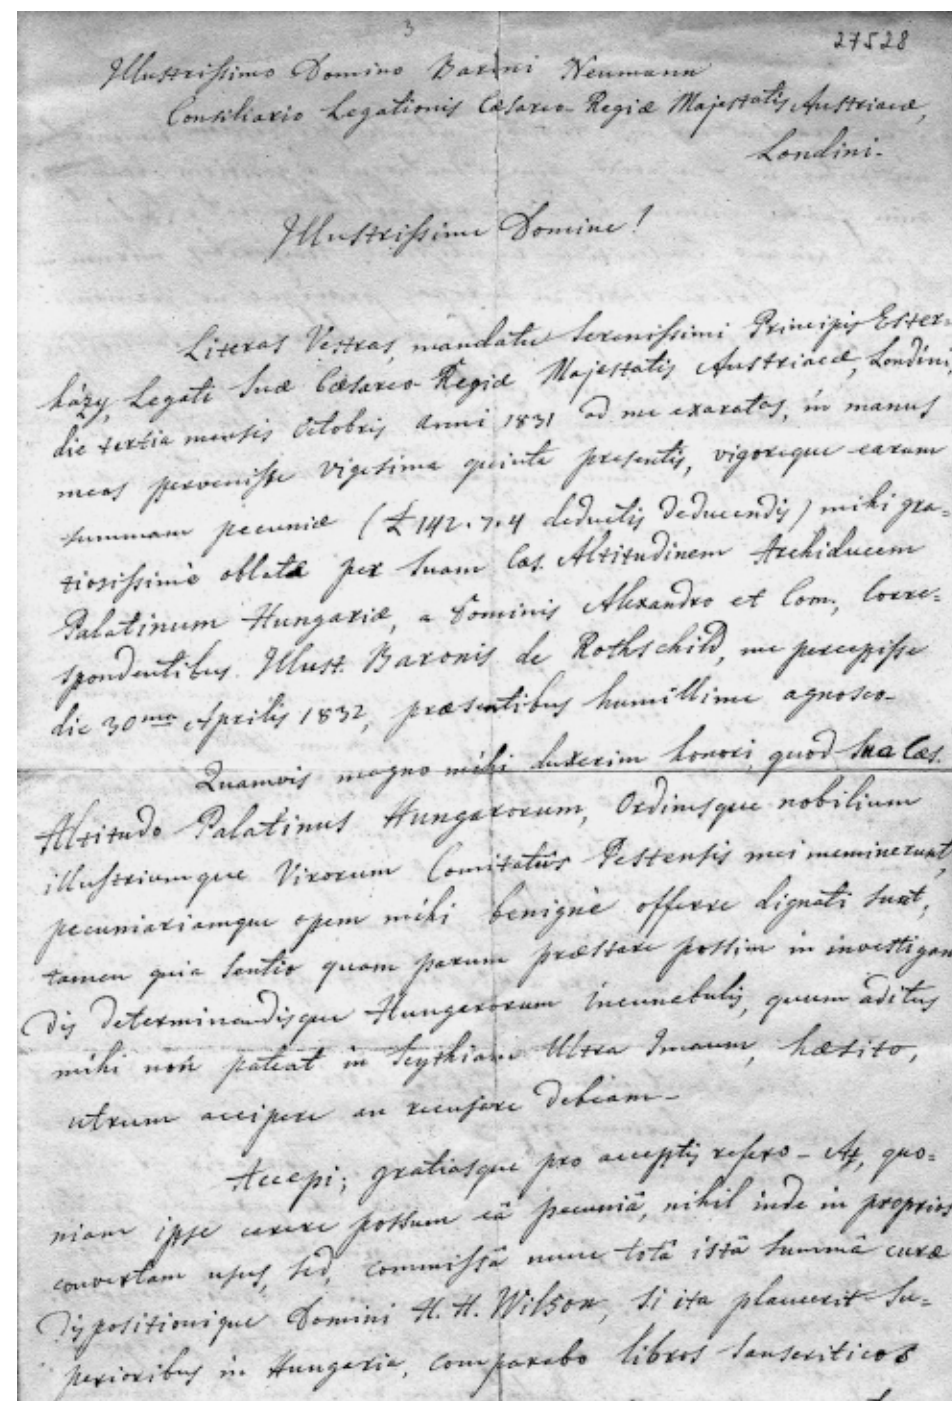 3
27528
Illustrissimo Domino Baroni Neumann
Consiliario Legationis Cæsareo-Regiæ Majestatis Austriacæ,
Londini.
Illustrissime Domine!
Literas Vestras, mandatu Serenissimi Principis Ester=
házy, Legati Suæ Cæsareo-Regiæ Majestatis Austriacæ, Londini,
die tertia mensis Octobris anni 1831 ad me exaratas, in manus
meas pervenisse vigesima quinta presentis, vigoreque earum
summam pecuniæ (£142.7.4 deductis deducendis) mihi gra=
tiosissimè oblatæ per Suam Cæs. Altitudinem Archiducem
Palatinum Hungariæ, a Dominis Alexandro et Com., Corre=
spondentibus Illust. Baronis de Rothschild, me percepisse
die 30ma Aprilis 1832, præsentibus humillime agnosco-
Quamvis magno mihi duxerim honori, quod Sua Cæs.
Altitudo Palatinus Hungarorum, Ordinesque nobilium
illustriumque Virorum Comitatûs Pestensis mei meminerunt,
pecuniariamque opem mihi benignè offerre dignati sunt,
tamen quia sentio quam parum præstare possim in investigan
dis determinandisque Hungarorum incunabulis, quum aditus
mihi non pateat in Scythiam Ultra Imaum, hæsito,
utrum accipere an recusare debeam-
Accepi; gratiasque pro acceptis refero- At, quo=
niam ipse carere possum eâ pecuniâ, nihil inde in proprios
convertam usus, sed, commissâ nunc totâ istâ summâ curæ
dispositionique Domini H. H. Wilson, si ita placuerit Su=
perioribus in Hungaria, comparabo libros Sanscriticos